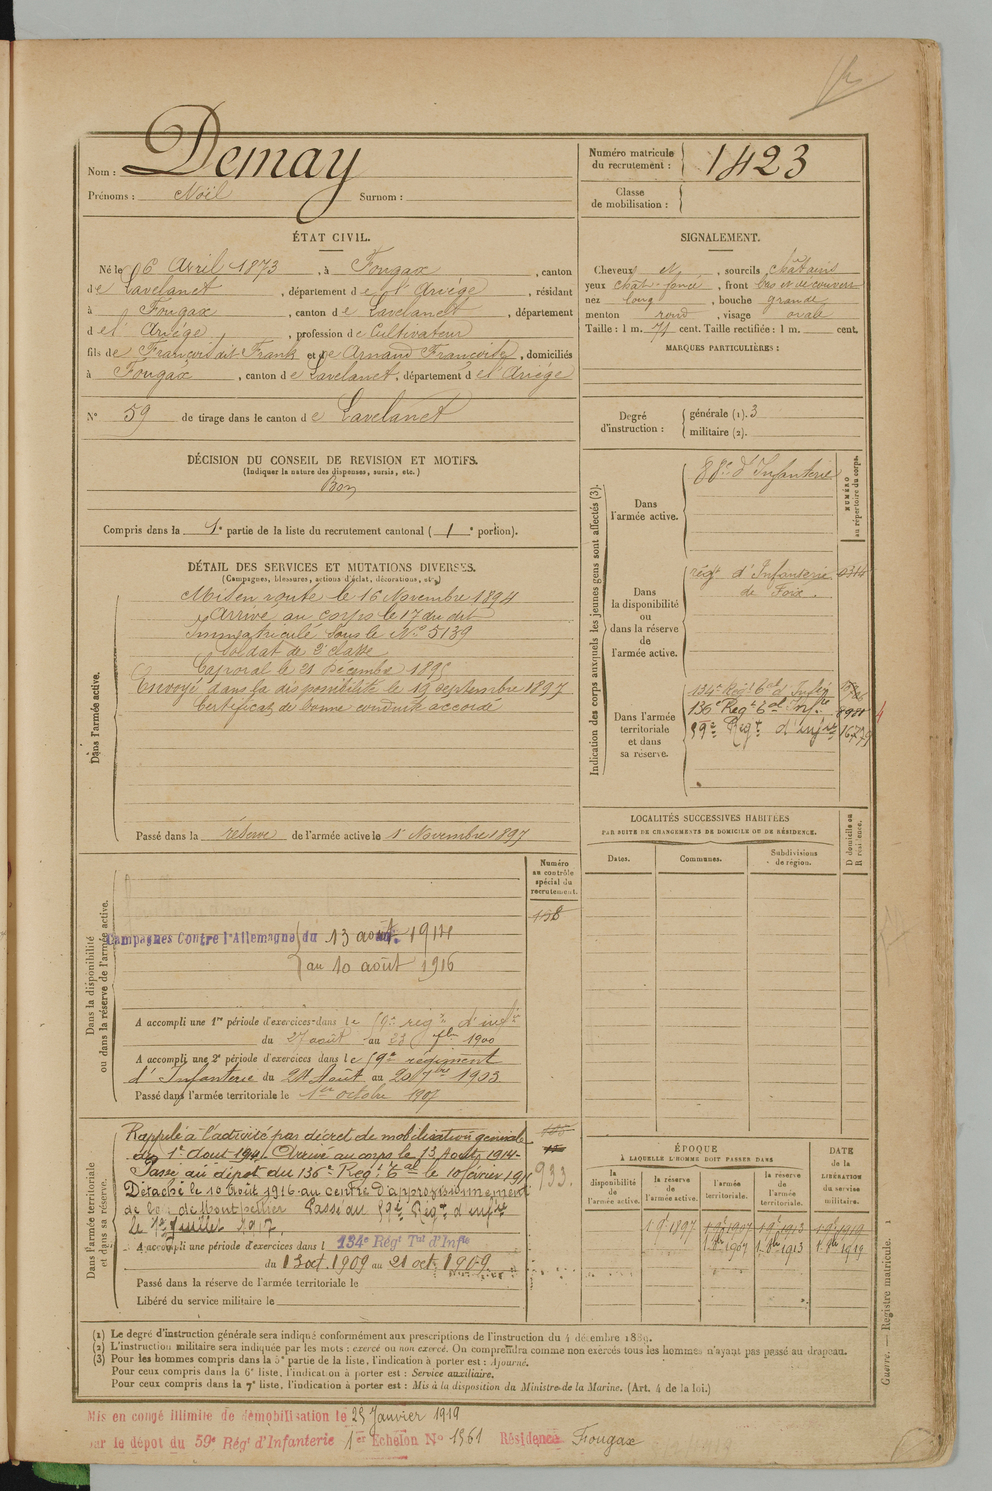 Nom : Demay
Prénoms : Noël Surnom :
Numéro matricule du recrutement : 1423
Classe de mobilisation :
ÉTAT CIVIL.
Né le 06 Avril 1873, à Fougax, canton
de Lavelanet, département de l'Ariège, résidant
à Fougax, canton de Lavelanet, département
de l'Ariège, profession de Cultivateur
fils de François dit Frank et de Arnaud Françoise, domiciliés
à Fougax, canton de Lavelanet, département de l'Ariège
N° 59 de tirage dans le canton de Lavelanet
SIGNALEMENT.
Cheveux et, sourcils châtains
yeux chat. foncé, front bas et découvert
nez long, bouche grande
menton rond, visage ovale
Taille : 1 m. 71 cent. Taille rectifiée : 1 m. cent.
MARQUES PARTICULIÈRES :
Degré d'instruction : générale (1). 3
militaire (2).
DÉCISION DU CONSEIL DE REVISION ET MOTIFS.
(Indiquer la nature des dispenses, sursis, etc.)
Bon
Compris dans la 1e partie de la liste du recrutement cantonal ( 1 e portion).
DÉTAIL DES SERVICES ET MUTATIONS DIVERSES.
(Campagnes, blessures, actions d'éclat, décorations, etc.)
Dans l'armée active.
Mis en route le 16 Novembre 1894
Arrivé au corps le 17 du dit
Immatriculé sous le N° 5139
Soldat de 2e classe
Caporal le 21 Décembre 1895
Envoyé dans la disponibilité le 19 septembre 1897
Certificat de bonne conduite accordé
Passé dans la réserve de l'armée active le 1er Novembre 1897
Indication des corps auxquels les jeunes gens sont affectés (3).
NUMÉRO au répertoire du corps.
Dans l'armée active. 88e d'Infanterie
Dans la disponibilité ou dans la réserve de l'armée active.
régt d'Infanterie 0314
de Foix.
Dans l'armée territoriale et dans sa réserve.
134e Régt tal d'Infie
136e Régt tal Infie 8981
59e Régt d'infie 16779
LOCALITÉS SUCCESSIVES HABITÉES
PAR SUITE DE CHANGEMENTS DE DOMICILE OU DE RÉSIDENCE.
D domicile ou R résidence.
Dates. Communes. Subdivisions de région.
Dans la disponibilité ou dans la réserve de l'armée active.
Numéro au contrôle spécial du recrutement.
158
Campagnes Contre l'Allemagne du 13 août 1914
au 10 août 1916
A accompli une 1re période d'exercices dans le 59e régt d'infie
du 27 août au 23 7bre 1900
A accompli une 2e période d'exercices dans le 59e régiment
d'Infanterie du 24 Août au 20 7bre 1903
Passé dans l'armée territoriale le 1er octobre 1907
Dans l'armée territoriale et dans sa réserve.
Rappelé à l'activité par décret de mobilisation générale
du 1er Aout 1914. Arrivé au corps le 13 Aout 1914.
Passé au dépôt du 136e Régt tal le 10 février 191
933.
Détaché le 10 Août 1916 au centre d'approvisionnement
de bois de Montpellier Passé au 59e Régt d'infie
le 1er Juillet 1917.
A accompli une période d'exercices dans l 134e Régt Tal d'Infie
du 13 oct. 1909 au 21 oct. 1909.
Passé dans la réserve de l'armée territoriale le
Libéré du service militaire le
ÉPOQUE
À LAQUELLE L'HOMME DOIT PASSER DANS
la disponibilité de l'armée active. la réserve de l'armée active. l'armée territoriale. la réserve de l'armée territoriale.
DATE de la LIBÉRATION du service militaire.
(1) Le degré d'instruction générale sera indiqué conformément aux prescriptions de l'instruction du 4 décembre 1889.
(2) L'instruction militaire sera indiquée par les mots : exercé ou non exercé. On comprendra comme non exercés tous les hommes n'ayant pas passé au drapeau.
(3) Pour les hommes compris dans la 5e partie de la liste, l'indication à porter est : Ajourné.
Pour ceux compris dans la 6e liste, l'indication à porter est : Service auxiliaire.
Pour ceux compris dans la 7e liste, l'indication à porter est : Mis à la disposition du Ministre de la Marine. (Art. 4 de la loi.)
Guerre. — Registre matricule. 1
Mis en congé illimité de démobilisation le 25 Janvier 1919
par le dépôt du 59e Régt d'Infanterie 1er Echelon N° 1361 Résidence Fougax